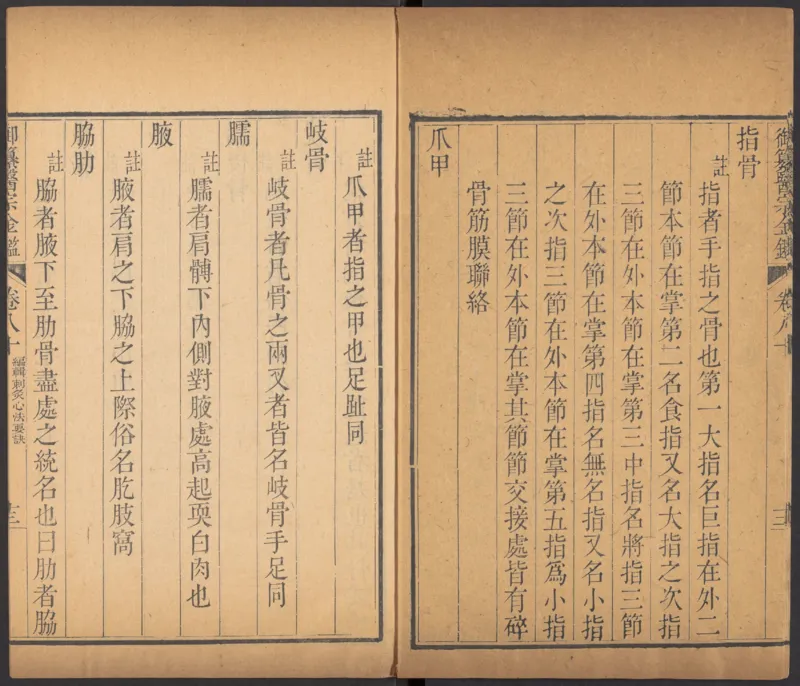 御纂醫宗金鑑
卷八十
三
指骨
註 指者手指之骨也第一大指名巨指在外二
節本節在掌第二名食指又名大指之次指
三節在外本節在掌第三中指名將指三節
在外本節在掌第四指名無名指又名小指
之次指三節在外本節在掌第五指爲小指
三節在外本節在掌其節節交接處皆有碎
骨筋膜聯絡
爪甲
註 爪甲者指之甲也足趾同
岐骨
註 岐骨者凡骨之兩叉者皆名岐骨手足同
臑
註 臑者肩髆下內側對腋處高起耎白肉也
腋
註 腋者肩之下脇之上際俗名肐肢窩
脇肋
註 脇者腋下至肋骨盡處之統名也曰肋者脇
御纂醫宗金鑑
卷八十
編輯刺灸心法要訣